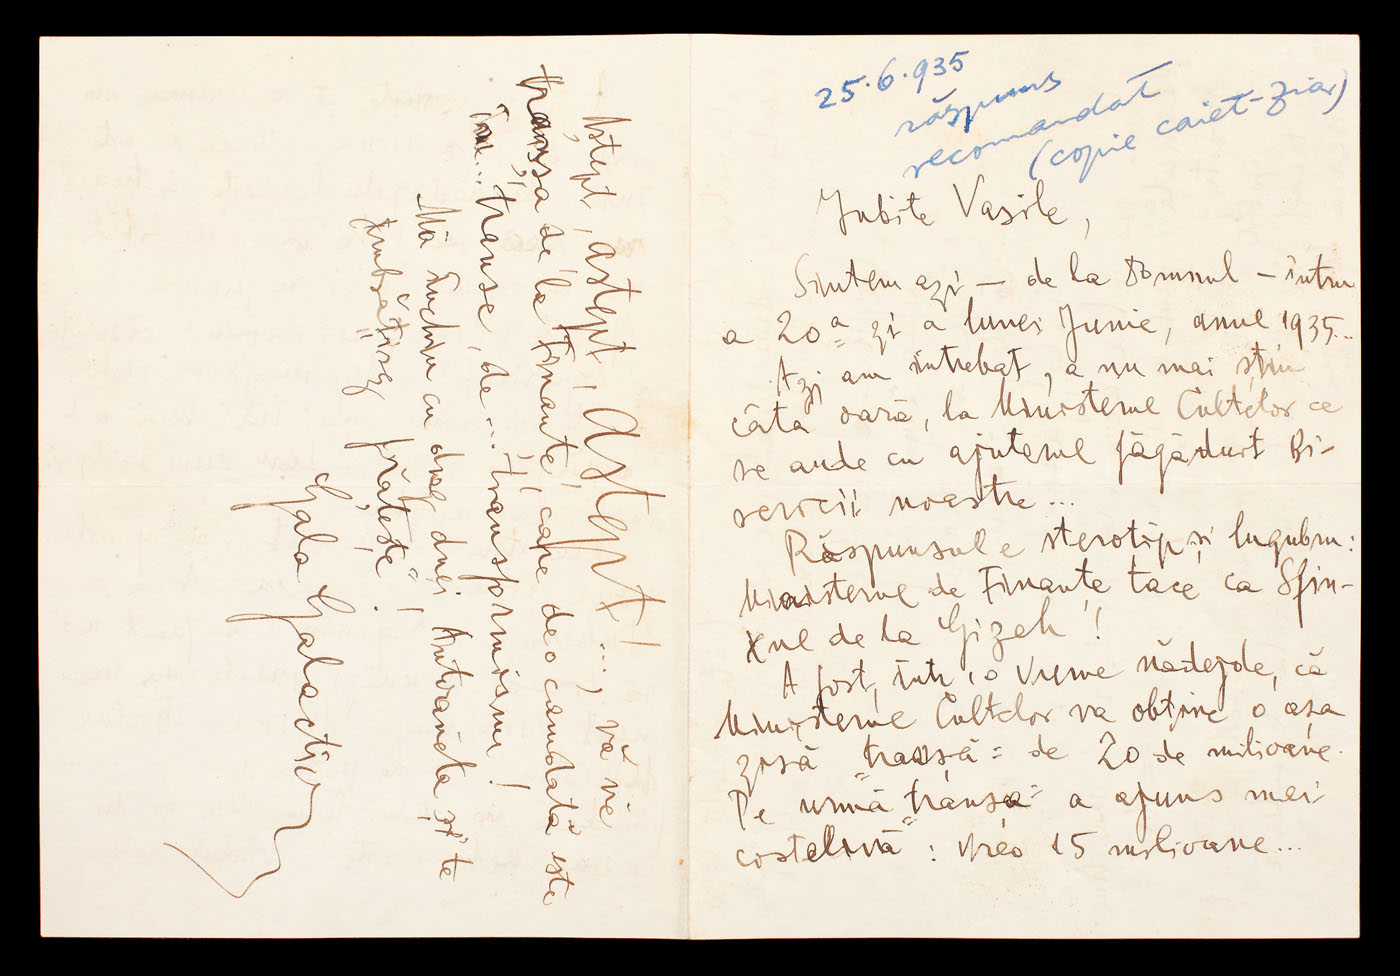 25.6.935
răspuns
recomandat
(copie caiet-ziar)
Iubite Vasile,
Sîntem azi — de la Domnul — întru
a 20ª zi a lunei Iunie, anul 1935...
Azi am întrebat, a nu mai știu
câta oară, la Ministerul Cultelor ce
se aude cu ajutorul făgăduit Bi-
sericii noastre...
Răspunsul e sterotip și lugubru:
Ministerul de Finanțe tace ca Sfin-
xul de la Gizeh!
A fost, într'o vreme nădejde, că
Ministerul Cultelor va obține o așa
zisă „tranșă" de 20 de milioane.
Pe urmă „tranșa" a ajuns mai
costelivă: vreo 15 milioane...
Aștept, aștept, Aștept!..., să vie
tranșa de la Finanțe, care deocamdată este
în... transe, de... transformism!
Mă închin cu drag dnei Antoaneta și te
îmbrățișez frățește!
Gala Galaction